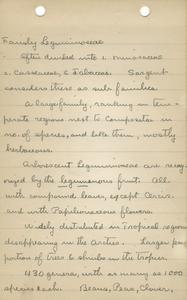 Family Leguminoseae
Often divided into 1. Mimoseae
2. Casseaceae, & Fabaceae. Sargent
considers these as sub families.
A large family, ranking in tem-
perate regions next to Compositae in
no. of species, and like them, mostly
herbaceous.
Arborescent Leguminoseae are recog-
nized by the leguminous fruit. All
with compound leaves, except Cercis
and with Papilionaceous flowers.
Widely distributed in Tropical regions
disappearing in the Arctics. Larger pro-
portion of trees & shrubs in the tropics.
430 genera, with as many as 1000
species each. Beans, Peas, Clover,